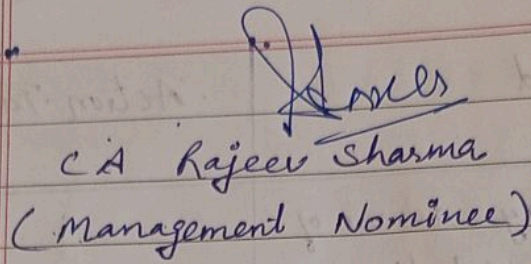 CA Rajeev Sharma
(Management Nominee)